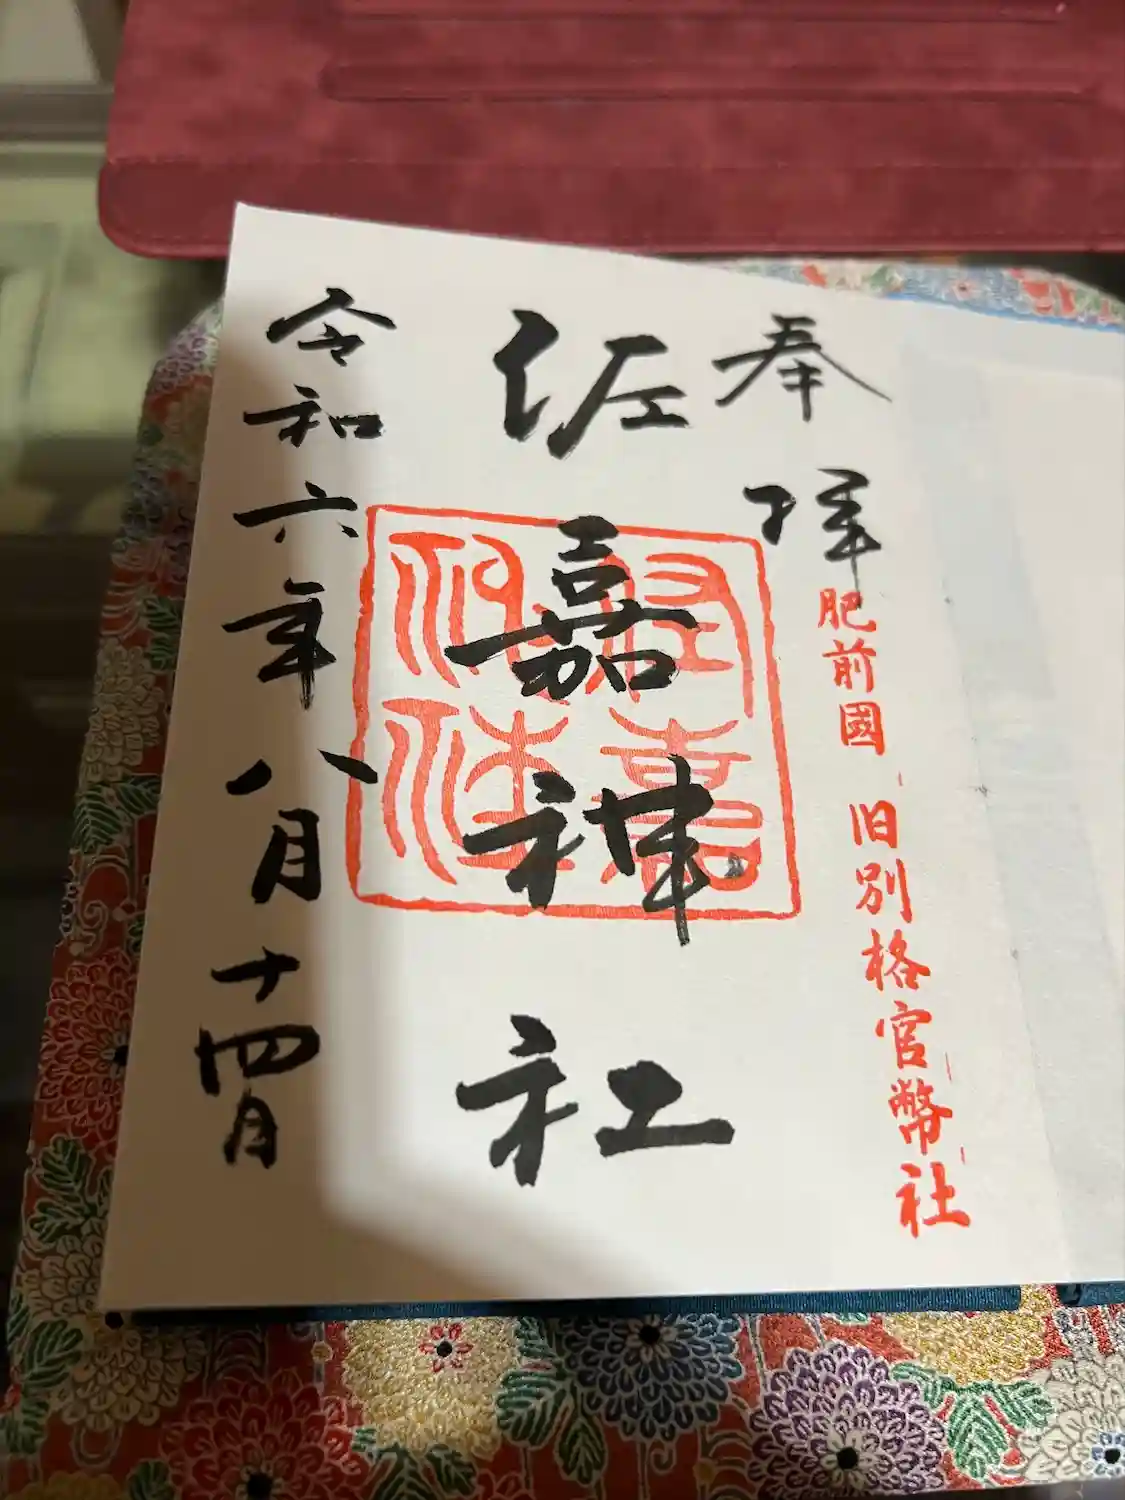 奉拝
肥前國 旧別格官幣社
佐嘉神社
令和六年八月十四日